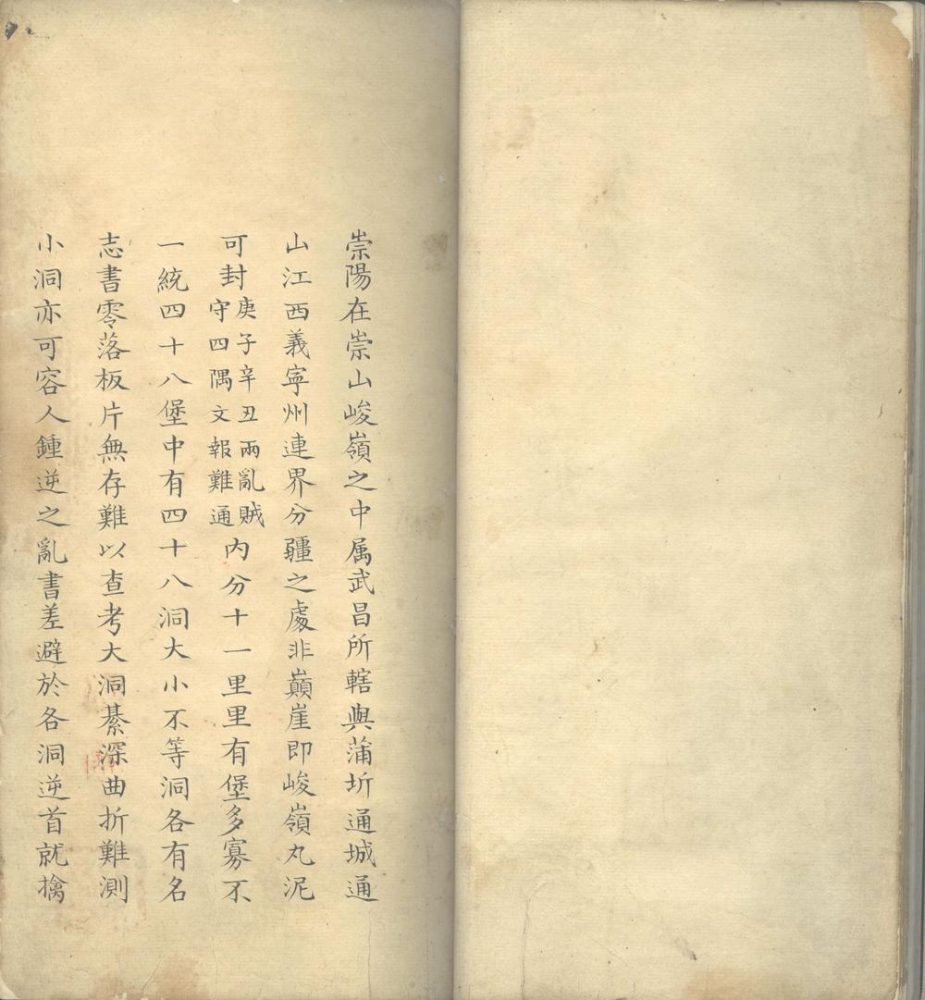 崇陽在崇山峻嶺之中属武昌所轄與蒲圻通城通
山江西義寧州連界分疆之處非巔崖即峻嶺丸泥
可封庚子辛丑兩亂賊守四隅文報難通内分十一里里有堡多寡不
一統四十八堡中有四十八洞大小不等洞各有名
志書零落板片無存難以查考大洞綦深曲折難測
小洞亦可容人鍾逆之亂書差避於各洞逆首就擒